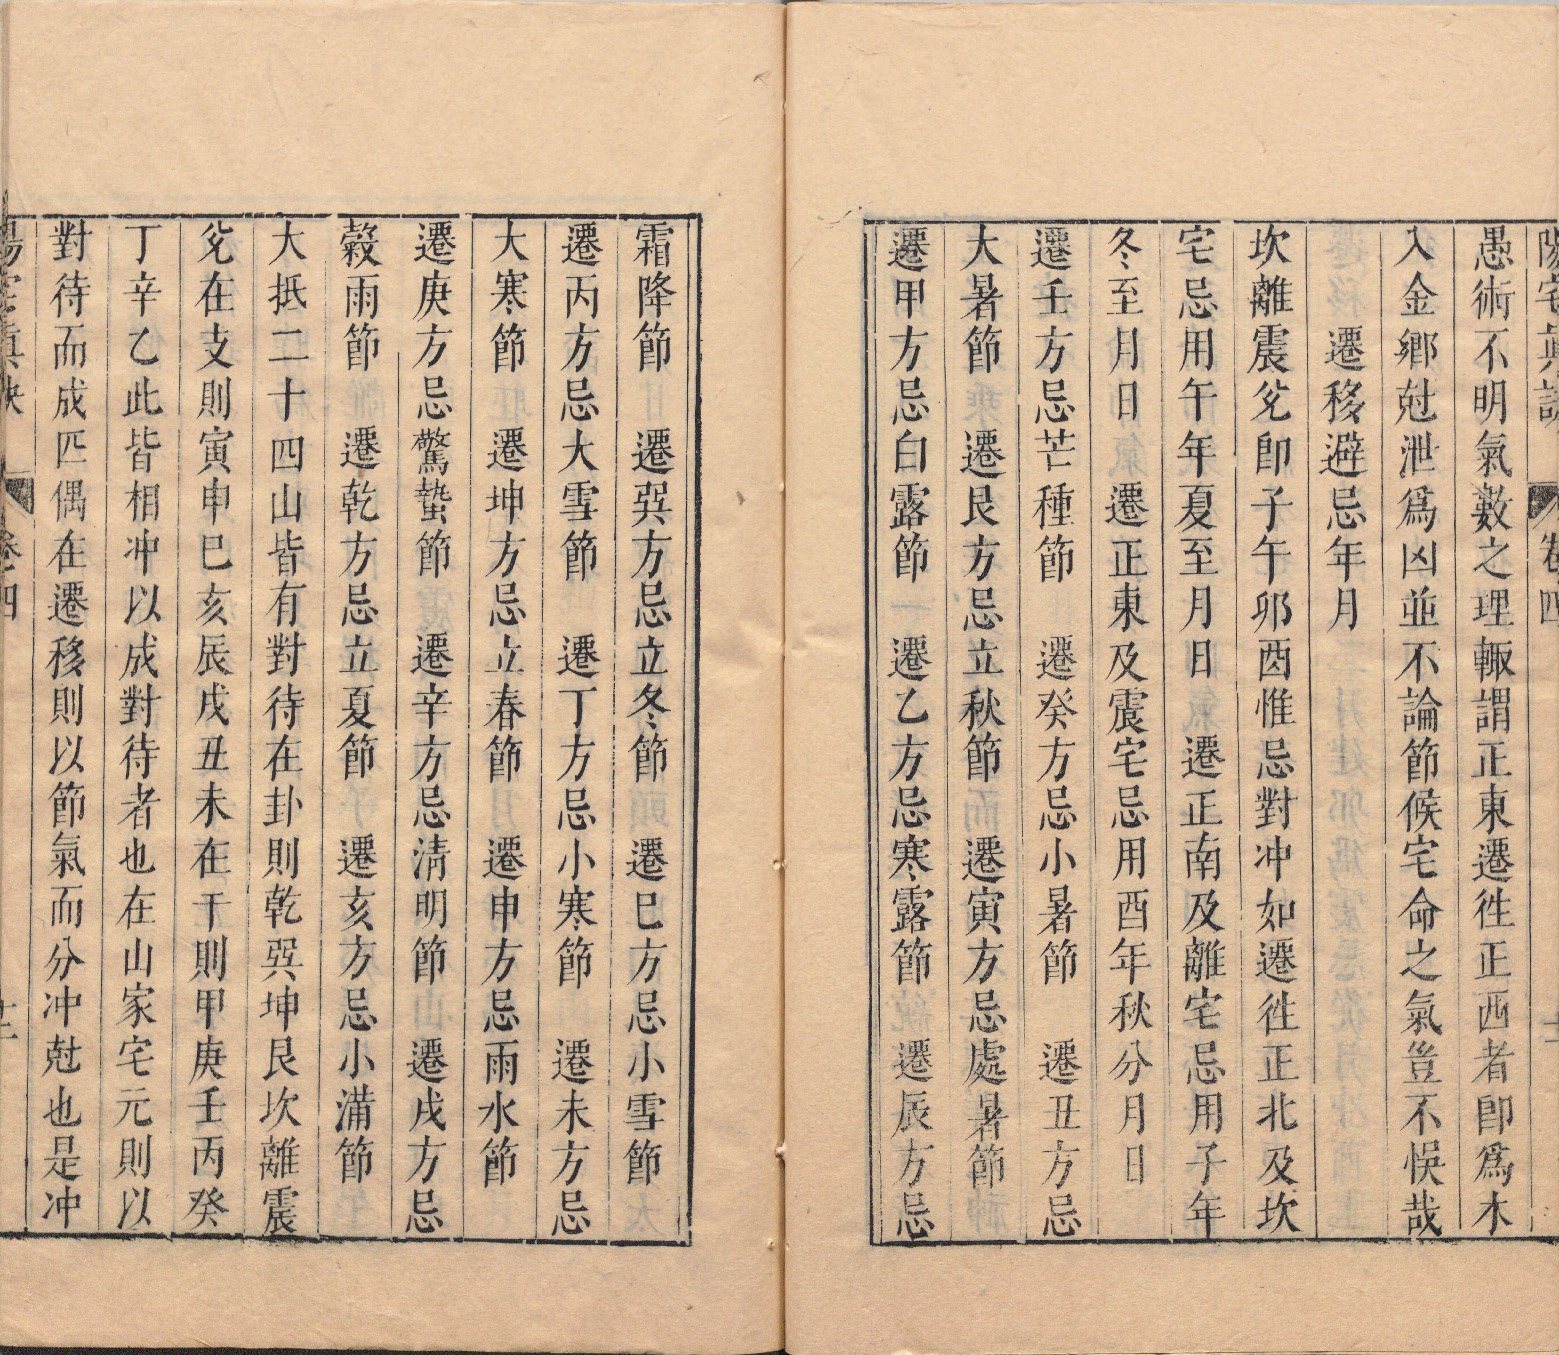 陽宅眞訣 卷四
愚術不明氣數之理輙謂正東遷徃正西者卽爲木
入金鄉尅泄爲凶並不論節候宅命之氣豈不悞哉
遷移避忌年月
坎離震兊卽子午卯酉惟忌對冲如遷徃正北及坎
宅忌用午年夏至月日　遷正南及離宅忌用子年
冬至月日　遷正東及震宅忌用酉年秋分月日
遷壬方忌芒種節　遷癸方忌小暑節　遷丑方忌
大暑節　遷艮方忌立秋節　遷寅方忌處暑節
遷甲方忌白露節　遷乙方忌寒露節　遷辰方忌
霜降節　遷巽方忌立冬節　遷巳方忌小雪節
遷丙方忌大雪節　遷丁方忌小寒節　遷未方忌
大寒節　遷坤方忌立春節　遷申方忌雨水節
遷庚方忌驚蟄節　遷辛方忌清明節　遷戌方忌
穀雨節　遷乾方忌立夏節　遷亥方忌小滿節
大抵二十四山皆有對待在卦則乾巽坤艮坎離震
兊在支則寅申巳亥辰戌丑未在干則甲庚壬丙癸
丁辛乙此皆相冲以成對待者也在山家宅元則以
對待而成匹偶在遷移則以節氣而分冲尅也是冲
陽宅眞訣 卷四